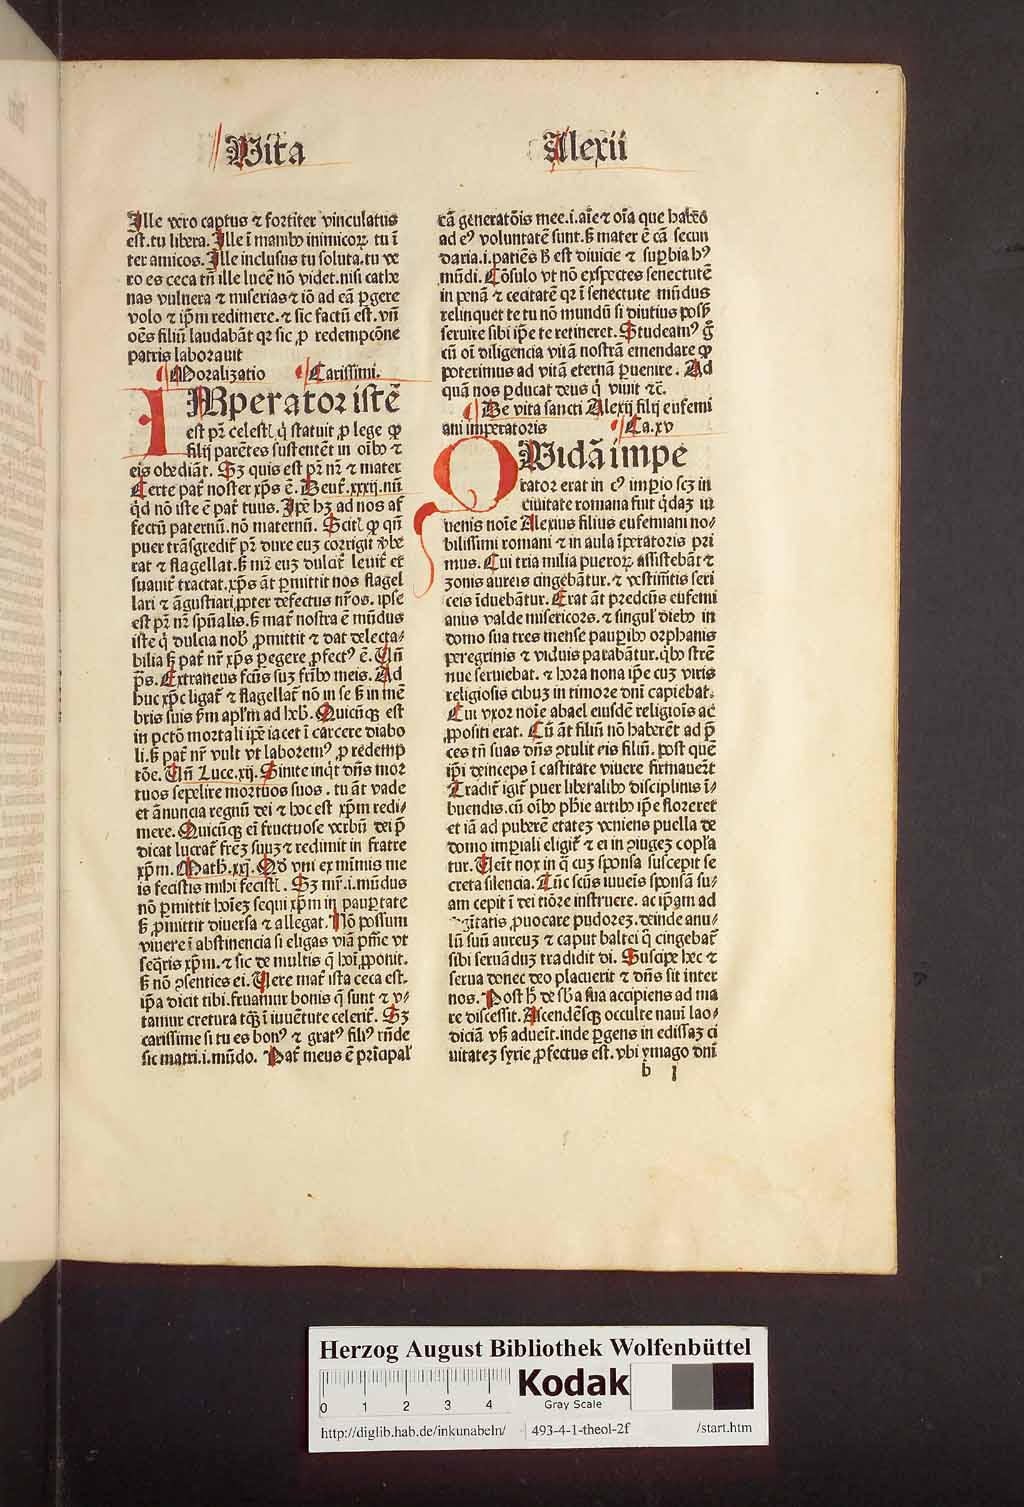 Vita Alexii
Ille vero captus ⁊ fortiter vinculatus
est. tu libera. Ille ī manibꝰ inimicoꝝ tu ī
ter amicos. Ille inclusus tu soluta. tu ve
ro es ceca tn̄ ille lucē nō videt. nisi cathe
nas vulnera ⁊ miserias ⁊ iō ad eā ꝑgere
volo ⁊ ip̄m redimere. ⁊ sic factū est. vn̄
oēs filiū laudabāt qꝛ sic ꝓ redempcōne
patris laborauit
Moralizatio Carissimi.
IMperator istē
est pr̄ celestꝭ q̇ statuit ꝓ lege ꝙ
filij parētes sustentēt in oībꝰ ⁊
eis obediāt. Sꝫ quis est pr̄ nr̄ ⁊ mater
Certe pat̄ noster xp̄s ē. Deut̄. xxxij. nū
q̇d nō iste ē pat̄ tuus. Ip̄e hꝫ ad nos af
fectū paternū. nō maternū. Scitꝭ ꝙ qn̄
puer trāsgredit̄ pr̄ dure euꝫ corrigit v̓be
rat ⁊ flagellat. ß mr̄ euꝫ dulcit̄ leuit̄ et
suauit̄ tractat. xp̄s āt ꝑmittit nos flagel
lari ⁊ āgustiari ꝓpter defectus nr̄os. ipse
est pr̄ nr̄ spūalis. ß mat̄ nostra ē mūdus
iste q̇ dulcia nob̄ ꝓmittit ⁊ dat delecta⸗
bilia ß pat̄ nr̄ xp̄s ꝑegere ꝓfectꝰ ē. Vn̄
p̄s. Extraneus fcūs suꝫ fr̄ibꝰ meis. Ad
huc xp̄c ligat̄ ⁊ flagellat̄ nō in se ß in mē
bris suis ẜm apl̄m ad heb̄. Quicūqꝫ est
in pctō mortali ip̄e iacet ī carcere diabo
li. ß pat̄ nr̄ vult vt laboremꝰ ꝓ redemp
tōe. Vn̄ Luce. xij. Sinite inqt̄ dn̄s mor
tuos sepelire mortuos suos. tu āt vade
et ānuncia regnū dei ⁊ hoc est xp̄m redi⸗
mere. Quicūqꝫ eī fructuose verbū dei p̄
dicat lucrat̄ fr̄eꝫ suuꝫ ⁊ redimit in fratre
xp̄m. Math̄. xxv. Qd̄ vni ex minimis me
is fecistis mihi fecistꝭ. Sꝫ mr̄. i. mūdus
nō ꝑmittit hoīeꝫ sequi xp̄m in pauꝑtate
ß ꝓmittit diuersa ⁊ allegat. Nō possum
viuere ī abstinencia si eligas viā p̄nīe vt
seq̄ris xp̄m. ⁊ sic de multis q̄ hoī ꝓponit.
ß nō ꝯsenties ei. Vere mat̄ ista ceca est.
ip̄a dicit tibi. fruamur bonis q̄ sunt ⁊ v⸗
tamur cretura tqꝫ̄ ī iuuētute celerit̄. Sꝫ
carissime si tu es bonꝰ ⁊ gratꝰ filiꝰ rn̄de
sic matri. i. mūdo. Pat̄ meus ē prīcipal̓
cā generatōis mee. i. aīe ⁊ oīa que habeo
ad eꝰ voluntatē sunt. ß mater ē cā secun
daria. i. patiēs ß est diuicie ⁊ suꝑbia hꝰ
mūdi. Cōsulo vt nō exspectes senectutē
in penā ⁊ cecitatē qꝛ ī senectute mūdus
relinquet te tu nō mundū si diutius posꝫ
seruire sibi ip̄e te retineret. Studeamꝰ g̊
cū oī diligencia vitā nostrā emendare ꝙ
poterimus ad vitā eternā ꝑuenire. Ad
quā nos ꝑducat deus q̇ viuit ⁊c̄.
De vita sancti Alexij filij eufemi
ani imꝑatoris Ca. xv
QVidā impe
rator erat in eꝰ imꝑio scꝫ in
ciuitate romana fuit q̇daꝫ iu
uenis noīe Alexius filius eufemiani no⸗
bilissimi romani ⁊ in aula īꝑatoris pri
mus. Cui tria milia pueroꝝ assistebāt ⁊
zonis aureis cingebātur. ⁊ vestimētis seri
ceis īduebātur. Erat āt predcūs eufemi
anus valde misericors. ⁊ singul̓ diebꝰ in
domo sua tres mense pauꝑibꝰ orphanis
peregrinis ⁊ viduis parabātur. qͥbꝰ stre
nue seruiebat. ⁊ hora nona ip̄e cuꝫ viris
religiosis cibuꝫ in timore dn̄i capiebat.
Cui vxor noīe abael eiusdē religiōis ac
ꝓpositi erat. Cū āt filiū nō haberēt ad p̄
ces tn̄ suas dn̄s ꝯtulit eis filiū. post quē
ip̄i deinceps ī castitate viuere firmauer̄t
Tradit̄ igit̄ puer liberalibꝰ disciplinis ī⸗
buendis. cū oībꝰ ph̄ie artibꝰ ip̄e floreret
et iā ad puberē etateꝫ veniens puella de
domo imꝑiali eligit̄ ⁊ ei in ꝯiugeꝫ copl̓a
tur. Veit nox in q̄ cuꝫ sponsa suscepit se
creta silencia. Tūc scūs iuueīs sponsā su⸗
am cepit ī dei tiōre instruere. ac ip̄am ad
ꝟgītatis ꝓuocare pudoreꝫ. deinde anu⸗
lū suū aureuꝫ ⁊ caput baltei q̊ cingebat̄
sibi seruāduꝫ tradidit dī. Suscipe hec ⁊
serua donec deo placuerit ⁊ dn̄s sit inter
nos. Post h̄ de sb̄a sua accipiens ad ma
re discessit. Ascendēsqꝫ occulte naui lao⸗
diciā vsqꝫ adueīt. inde ꝑgens in edissaꝫ ci
uitateꝫ syrie ꝓfectus est. vbi ymago dn̄i
b j
Herzog August Bibliothek Wolfenbüttel
0 1 2 3 4
Kodak
Gray Scale
http://diglib.hab.de/inkunabeln/ 493-4-1-theol-2f /start.htm